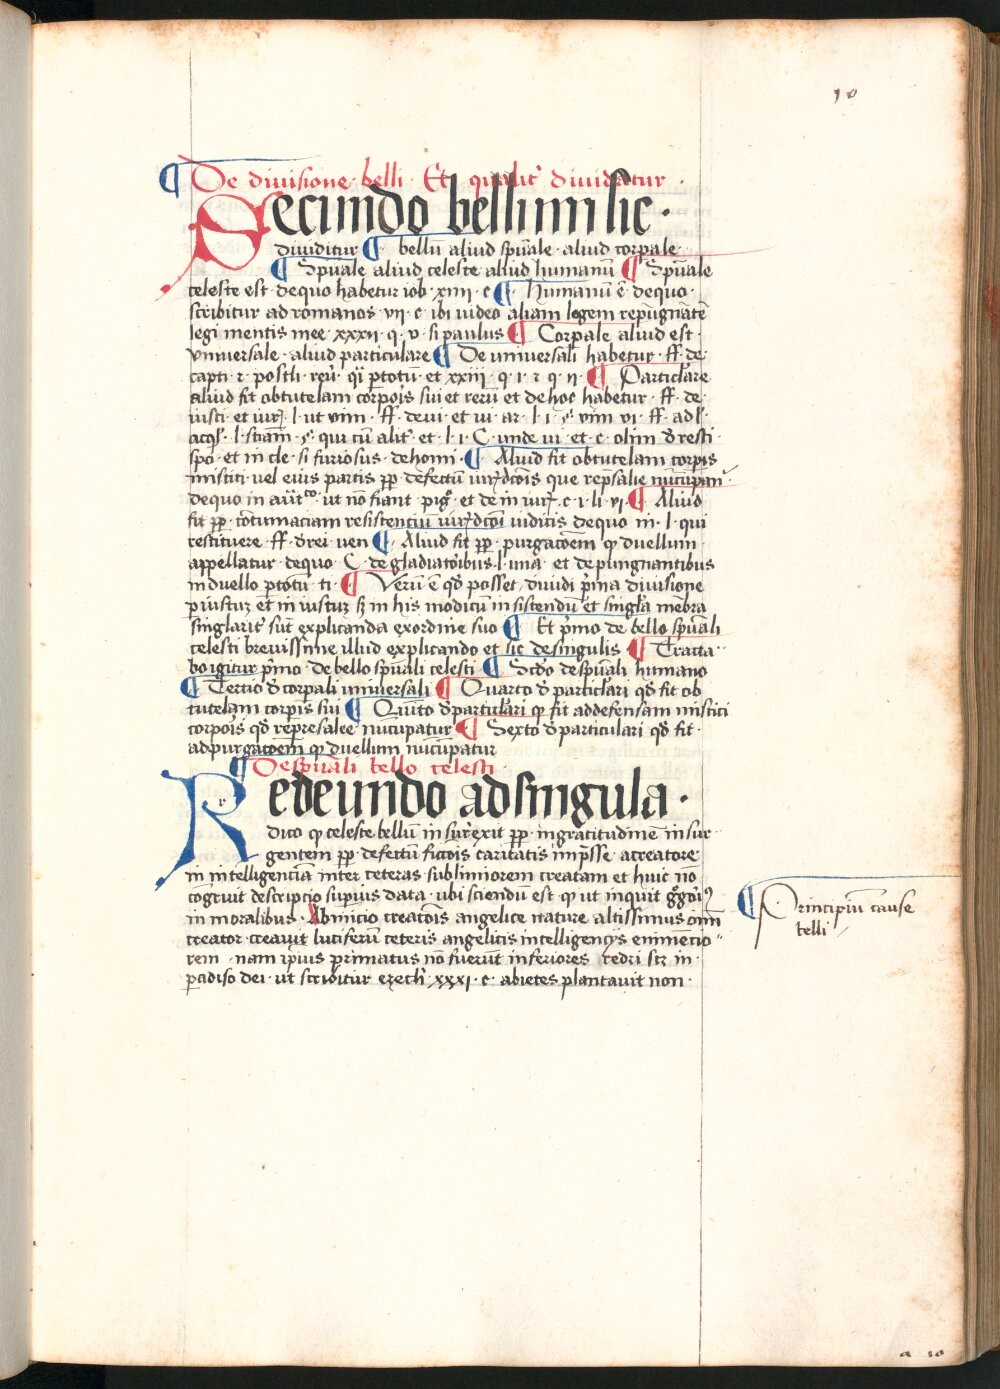 10
¶ De diuisione belli Et qualit᷑ diuidatur ·
Secundo bellum sic ·
diuiditur ¶ bellū aliud spūale · aliud corpale
¶ Spūale aliud celeste aliud humanū ¶ Spūale
celeste est · de quo habetur iob · xiiii · c ¶ Humanū ē de quo ·
scribitur ad romanos vii · c · ibi uideo aliam legem repugnātē
legi mentis mee · xxxii · q · v · si paulus ¶ Corpale aliud est ·
vniuersale · aliud particulare ¶ De uniuersali habetur · ff · de ·
capti · ⁊ · postli · reu᷑ · et xxiii · q · i · ⁊ · q · ii · ¶ Particlare
aliud fit ob tutelam corporis sui et rerū et de hoc habetur · ff · de ·
iusti · et iur · l · ut uim · ff · de ui · et ui · ar · l · i · § · uim ui · ff · ad l ·
acql · l · sciam · § · qui cū alit᷑ · et · l · i · C · unde ui · et · c · olim · d resti ·
spo · et in cle · si furiosus · de homi · ¶ Aliud fit ob tutelam corpis
mistici · uel eius partis pp · defectū iurdcois que repsalie nūcupan᷑
de quo in autco · ut nō fiant · pig · et de in iur · c · i · li · vi · ¶ Aliud
fit pp · cōtumaciam resistentiū iurdcōi iudicis de quo in · l · qui
restituere · ff · d rei uen ¶ Aliud fit pp · purgacoem qd duellum
appellatur · de quo C · de gladiatoribus · l · una · et de pungnantibus
in duello · p totū · ti · ¶ Verū ē qd posset diuidi prima diuisione
p iustuz et in iustuz sz in his modicū in sistendū et singla mēbra
singlarit᷑ sūt explicanda ex ordine suo ¶ Et pmo de bello spūali
celesti breuissime illud explicando et sic de singulis ¶ Tracta
bo igitur pmo · de bello spūali celesti ¶ Scdo de spūali humano
¶ Tercio d corpali uniuersali ¶ Quarto d particlari qd fit ob
tutelam corpis sui ¶ Quito d particulari qd fit ad defensam mistici
corporis qd represalee nūcupatur ¶ Sexto d particulari qd fit ·
ad purgacoem qd duellum nūcupatur
¶ De spūali bello celesti ·
Redeundo ad singula ·
dico qd celeste bellū in surrexit pp · ingratitudine in sur
gentem pp · defectū fictois caritatis impsse · a creatore
in intelligenciā inter ceteras sublimiorem creatam et huic nō
cōgruit descripcio superius data · ubi sciendū est qd ut inquit ggorius
in moralibus · Ab inicio creacois angelice nature altissimus omn
creator creauit luciferū ceteris angelicis intelligencijs eminencio
rem · nam ipius primatus nō fuerūt inferiores cedri scz in ·
padiso dei · ut scribitur ezech · xxxi · c · abietes plantauit non ·
¶ Principiū cause
belli
a 10